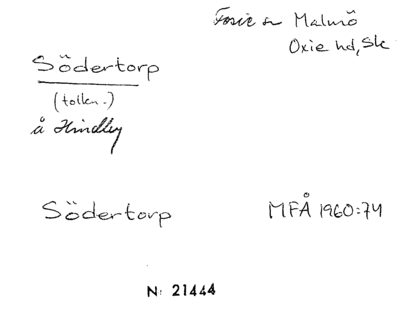 Fosie sn Malmö
Oxie hd, Sk
Södertorp
(tolkn.)
å Hindby
Södertorp
MFÅ 1960:74
N: 21444